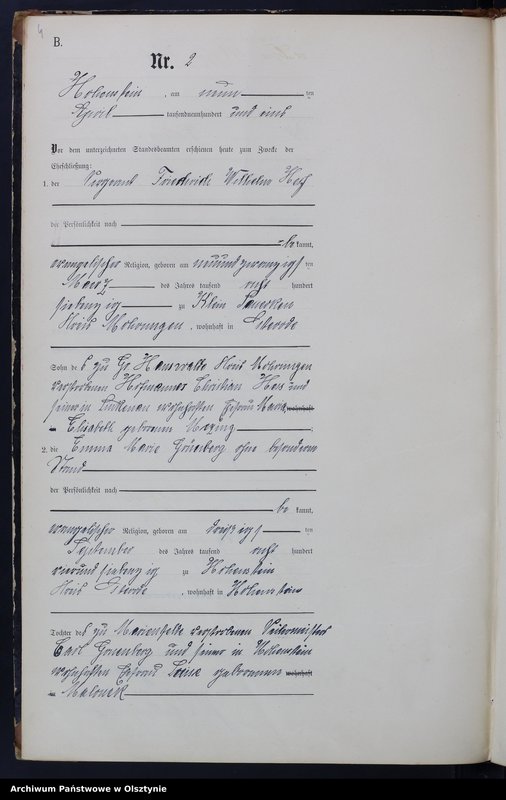 4
B.
Nr. 2
Hohenstein, am neun ten
April tausendneunhundert und eins
Vor dem unterzeichneten Standesbeamten erschienen heute zum Zwecke der
Eheschließung:
1. der Sergeant Friedrich Wilhelm
der Persönlichkeit nach
be kannt,
evangelischer Religion, geboren am neunundzwanzigs ten
März des Jahres tausend acht hundert
siebenzig zu Klein
Kreis Mohrungen, wohnhaft in Osterode
Sohn des zu Kreis Mohrungen
verstorbenen Christian und
seiner in wohnhaften Ehefrau Maria wohnhaft
in Elisabeth geborenen
2. die Emma Marie Grünberg ohne besonderen
Stand
der Persönlichkeit nach
be kannt,
evangelischer Religion, geboren am dreißigs ten
September des Jahres tausend acht hundert
vierundsiebenzig zu Hohenstein
Kreis Osterode, wohnhaft in Hohenstein
Tochter des zu Marienfelde verstorbenen
Carl Grünberg und seiner in Hohenstein
wohnhaften Ehefrau geborenen wohnhaft
in
Archiwum Państwowe w Olsztynie